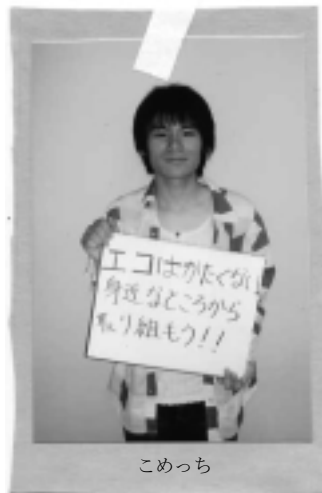 エコはかたくない
身近なところから
取り組もう!!
こめっち